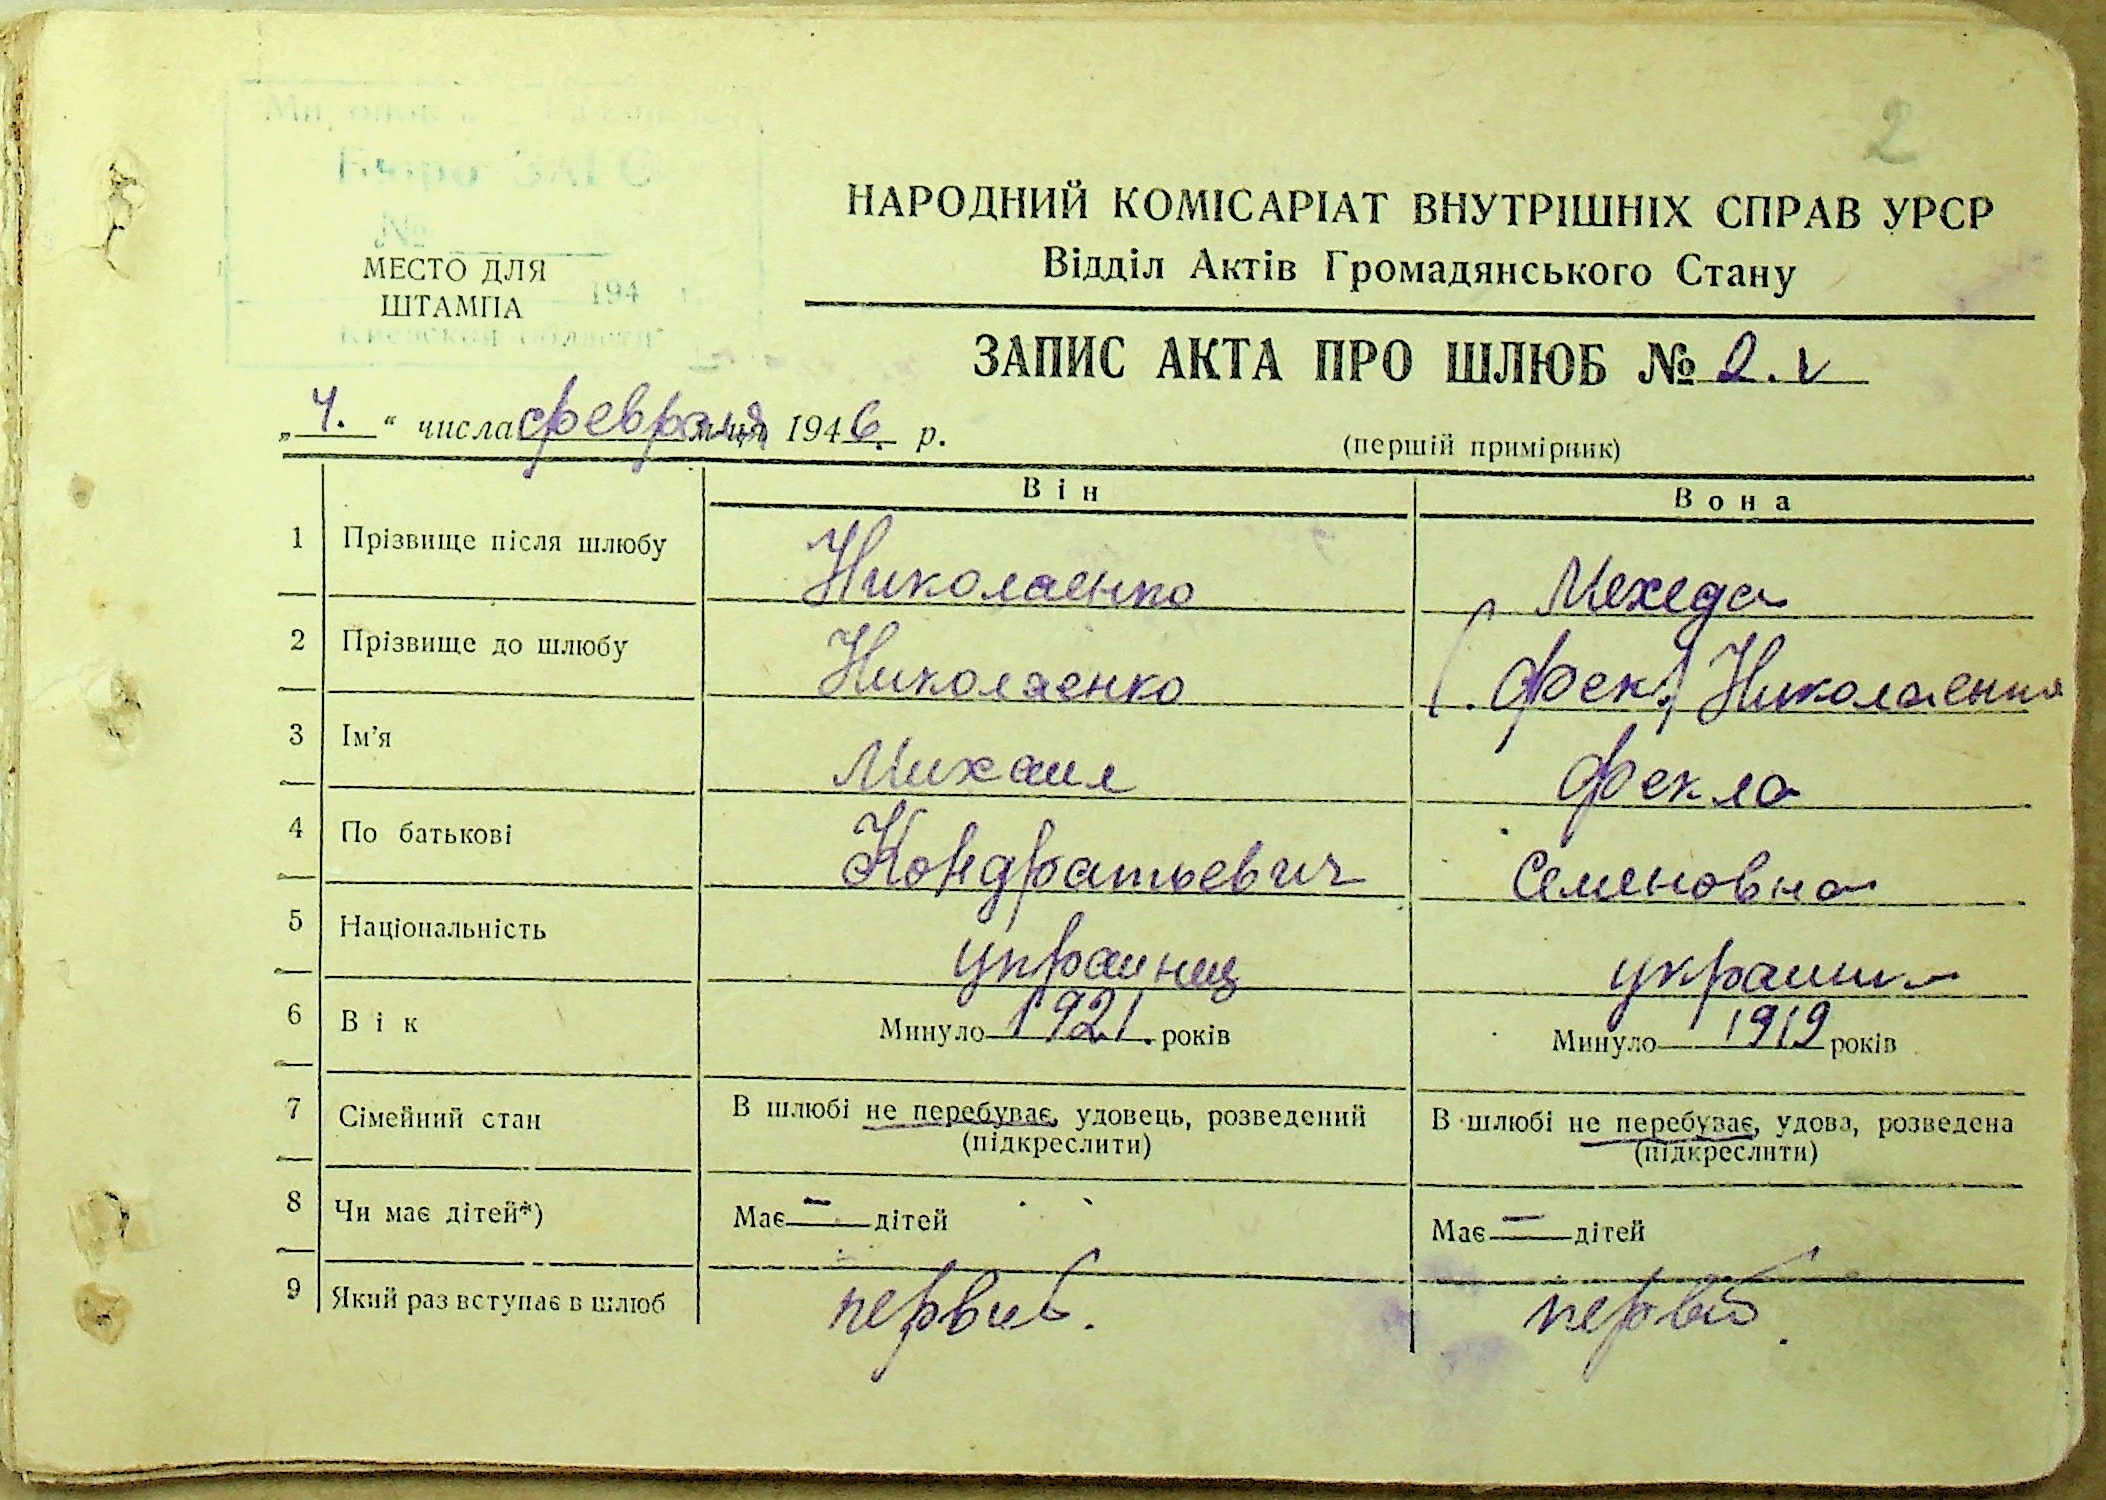 2
Бюро ЗАГС
№
МЕСТО ДЛЯ
ШТАМПА
194
Киевской области
НАРОДНИЙ КОМІСАРІАТ ВНУТРІШНІХ СПРАВ УРСР
Відділ Актів Громадянського Стану
ЗАПИС АКТА ПРО ШЛЮБ № 2.
„4.“ числа февраля м-ця 1946. р.
(першій примірник)
Він Вона
1 Прізвище після шлюбу Николаенко Мехеда
2 Прізвище до шлюбу Николаенко (Фек.) Николаенко
3 Ім’я Михаил Фекла
4 По батькові Кондратьевич Семеновна
5 Національність украинец
6 Вік Минуло 1921. років Минуло 1919 років
7 Сімейний стан В шлюбі не перебуває, удовець, розведений В шлюбі не перебуває, удова, розведена
(підкреслити) (підкреслити)
8 Чи має дітей*) Має — дітей Має — дітей
9 Який раз вступає в шлюб первый. первый.